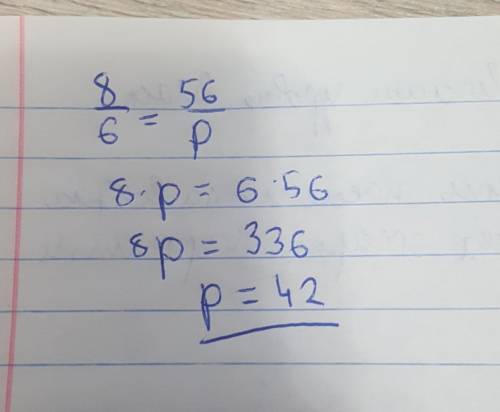 8/6 = 56/p
8·p = 6·56
8p = 336
p = 42